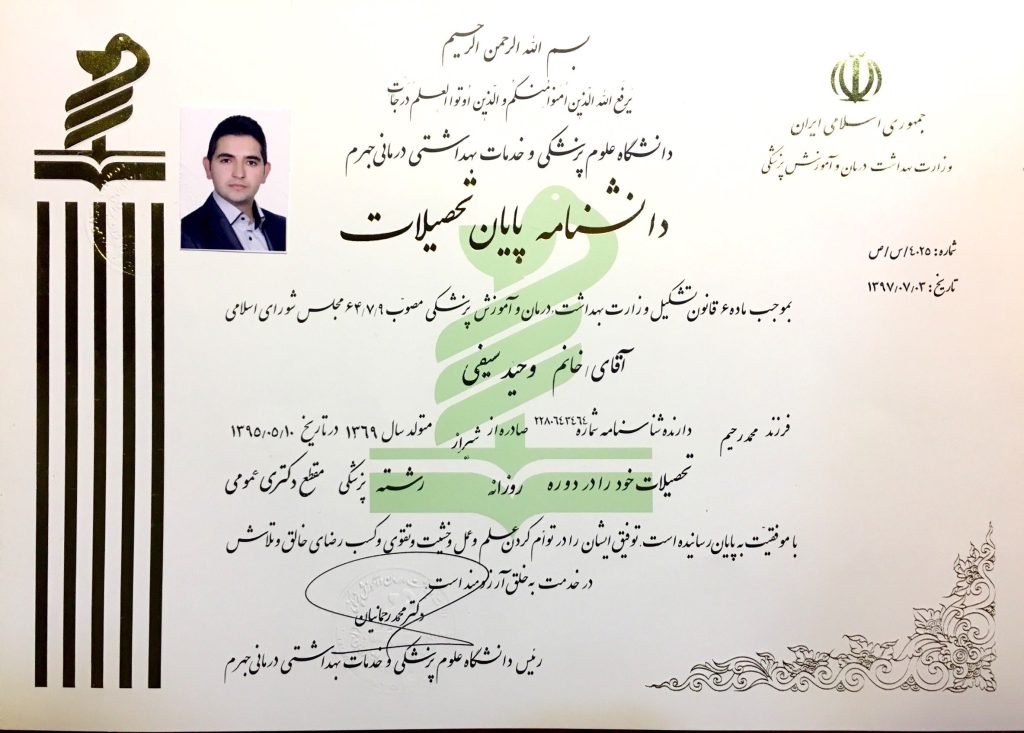 بسم الله الرحمن الرحیم
یرفع الله الذین آمنوا منکم و الذین اوتوا العلم درجات
جمهوری اسلامی ایران
وزارت بهداشت درمان و آموزش پزشکی
دانشگاه علوم پزشکی و خدمات بهداشتی درمانی جهرم
دانشنامه پایان تحصیلات
شماره: ۴۰۲۵/س/ص
تاریخ: ۱۳۹۷/۰۷/۰۳
بموجب ماده ۶ قانون تشکیل وزارت بهداشت، درمان و آموزش پزشکی مصوب ۶۴/۷/۹ مجلس شورای اسلامی
آقای/خانم وحید سیفی
فرزند محمدرحیم دارنده شناسنامه شماره ۲۲۸۰۶۴۳۴۶۴ صادره از شیراز متولد سال ۱۳۶۹ در تاریخ ۱۳۹۵/۰۵/۱۰
تحصیلات خود را در دوره روزانه رشته پزشکی مقطع دکتری عمومی
با موفقیت به پایان رسانیده است. توفیق ایشان را در توأم کردن علم و عمل و خشیت و تقوی و کسب رضای خالق و تلاش
در خدمت به خلق آرزومند است.
دکتر محمد رحمانیان
رئیس دانشگاه علوم پزشکی و خدمات بهداشتی درمانی جهرم